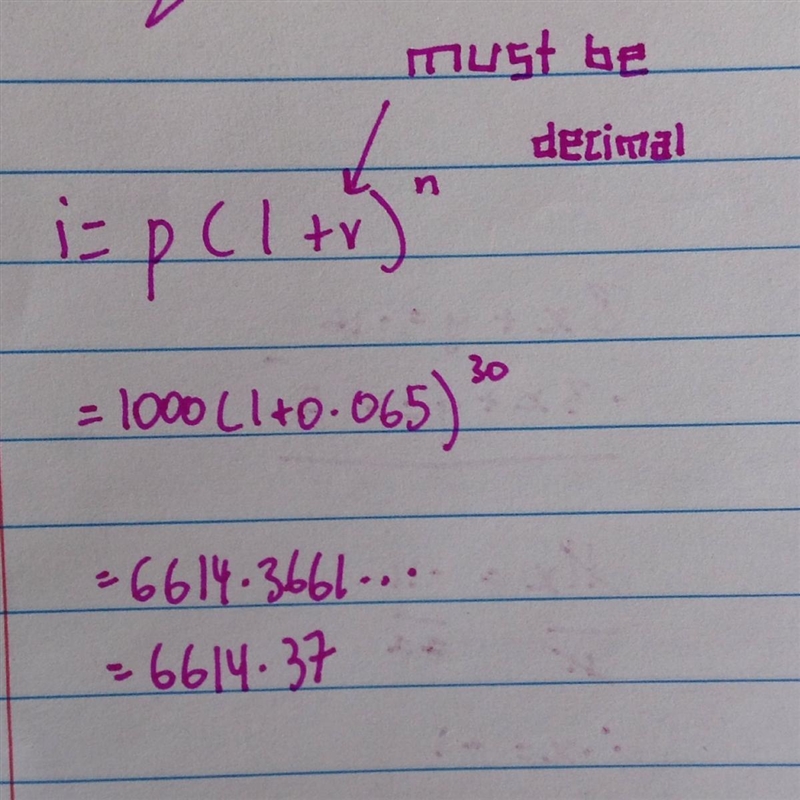 must be
decimal
i= p(1+r)^n
=1000(1+0.065)^30
=6614.3661...
=6614.37